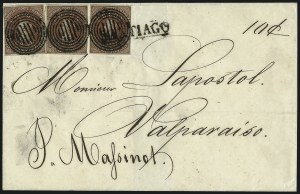 TIAGO
Monsieur Lapostol.
Valparaiso.
P. Massinot.